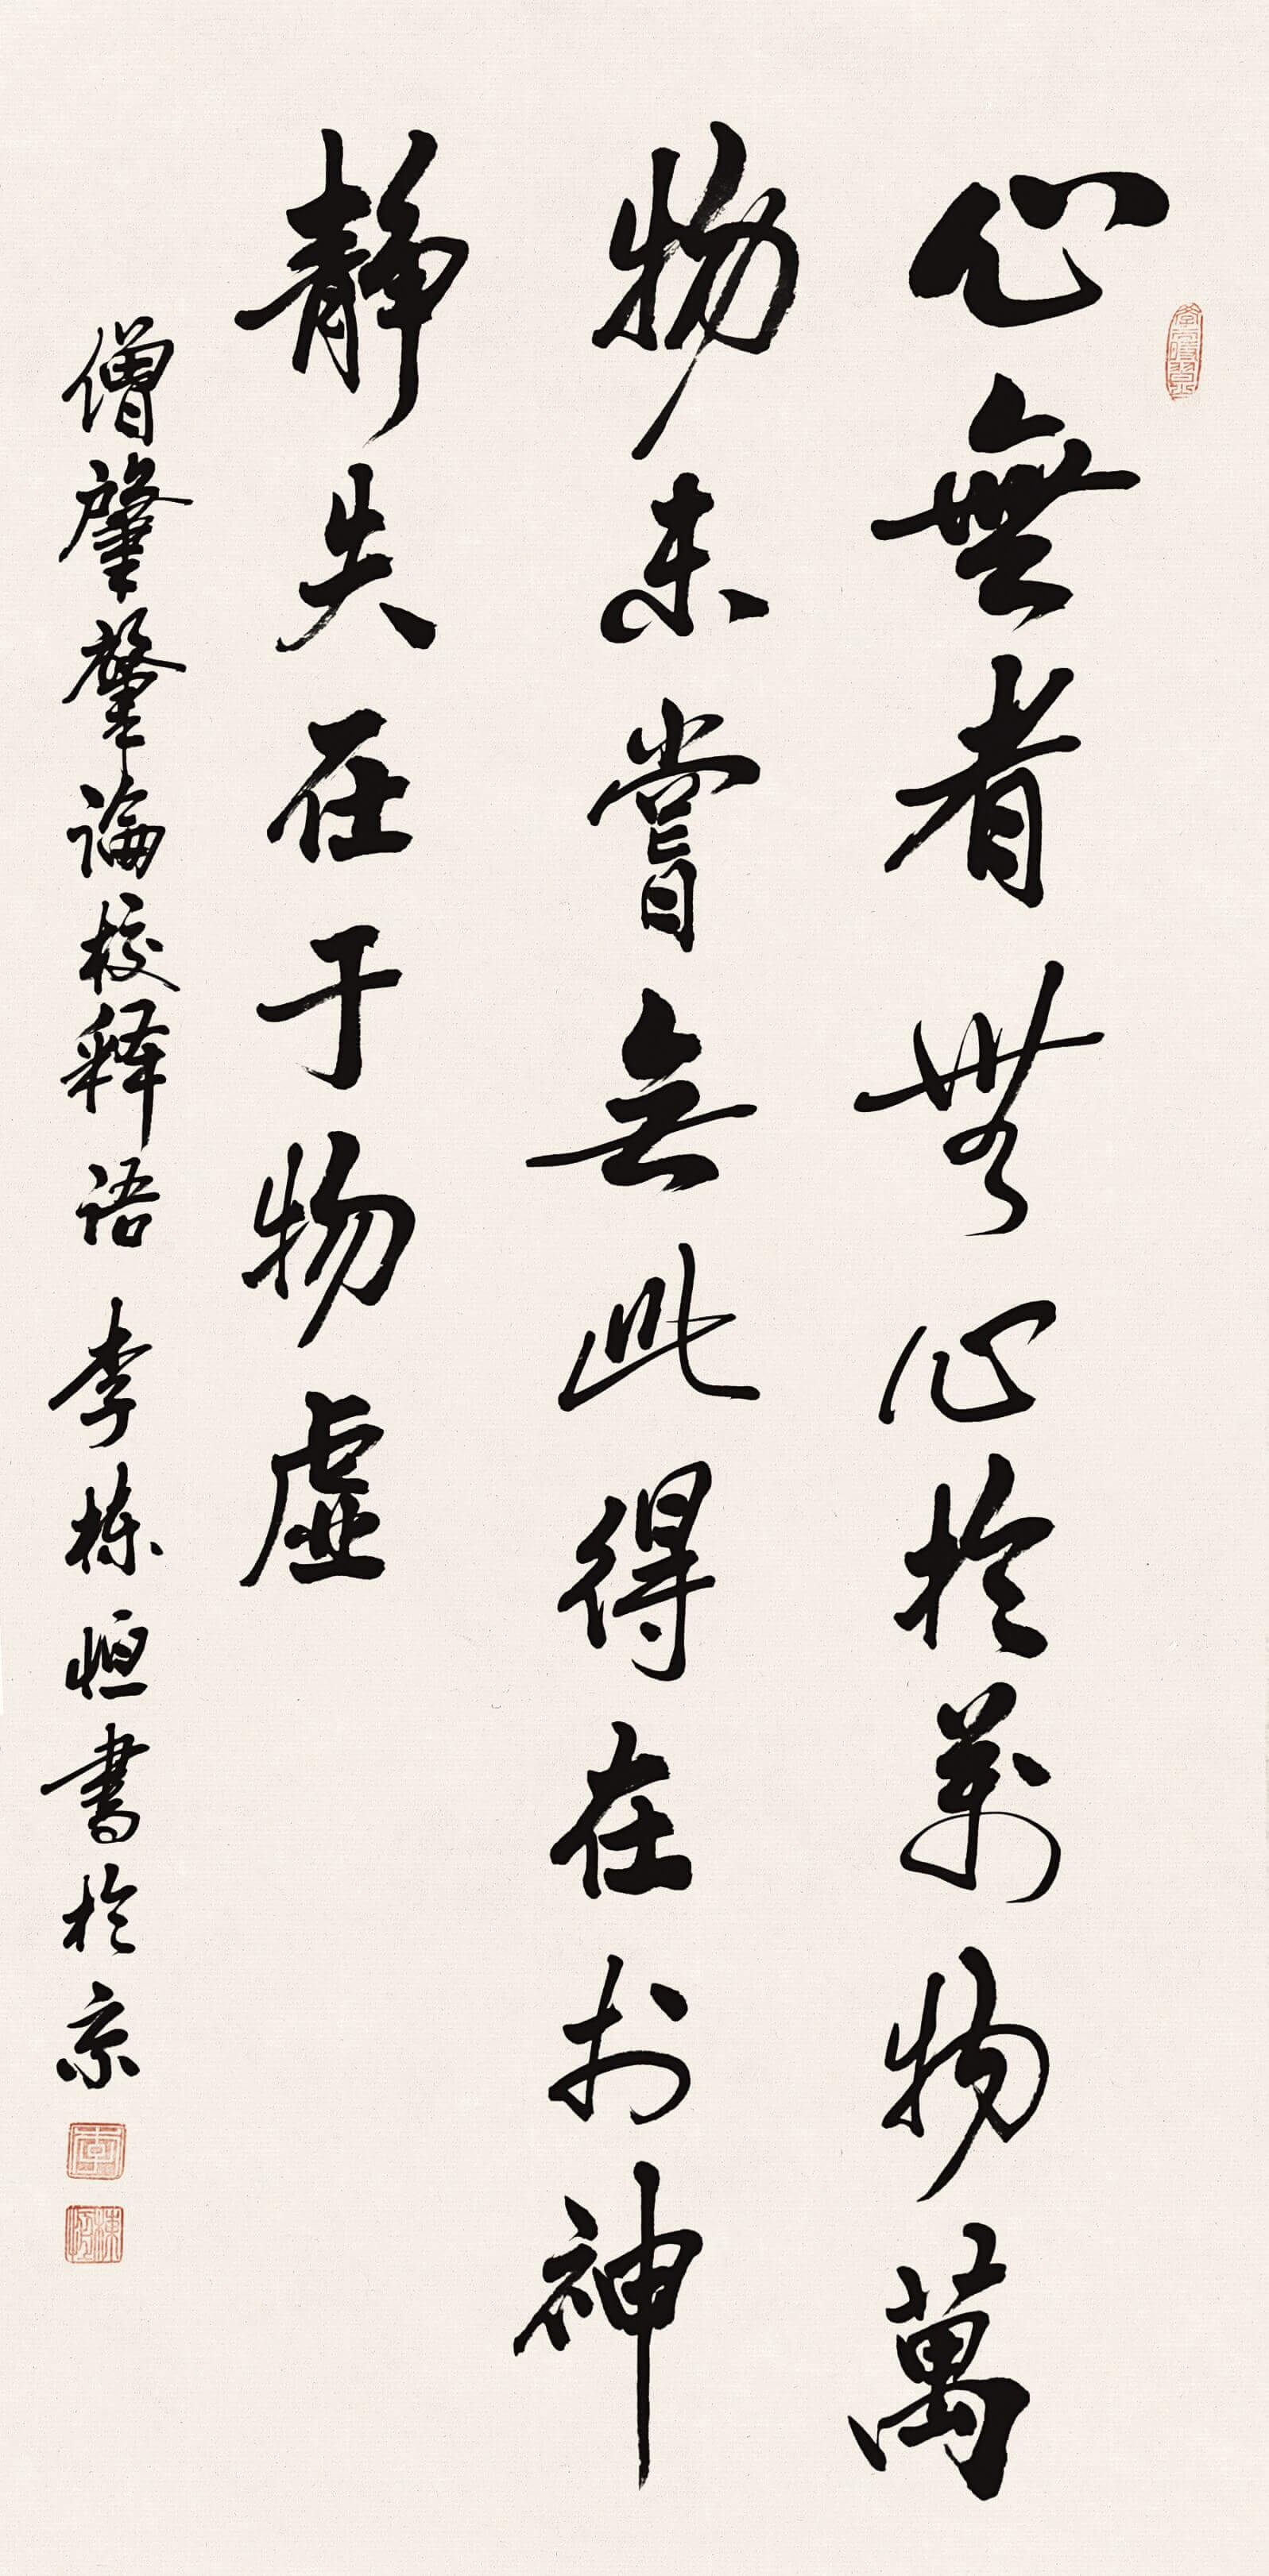 心無者無心於萬物萬
物未嘗無此得在於神
静失在于物虛
僧肇肇論校释语 李栋恒書於京